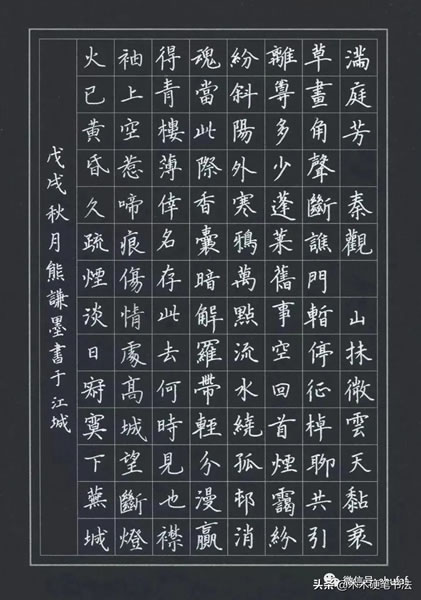 滿庭芳 秦觀 山抹微雲天黏衰
草畫角聲斷譙門暫停征棹聊共引
離尊多少蓬萊舊事空回首煙靄紛
紛斜陽外寒鴉萬點流水繞孤邨消
魂當此際香囊暗解羅帶輕分漫贏
得青樓薄倖名存此去何時見也襟
袖上空惹啼痕傷情處高城望斷燈
火已黃昏久疏煙淡日寂寞下蕪城
戊戌秋月熊謙墨書于江城
微信号: shufaf
头条@木木硬笔书法